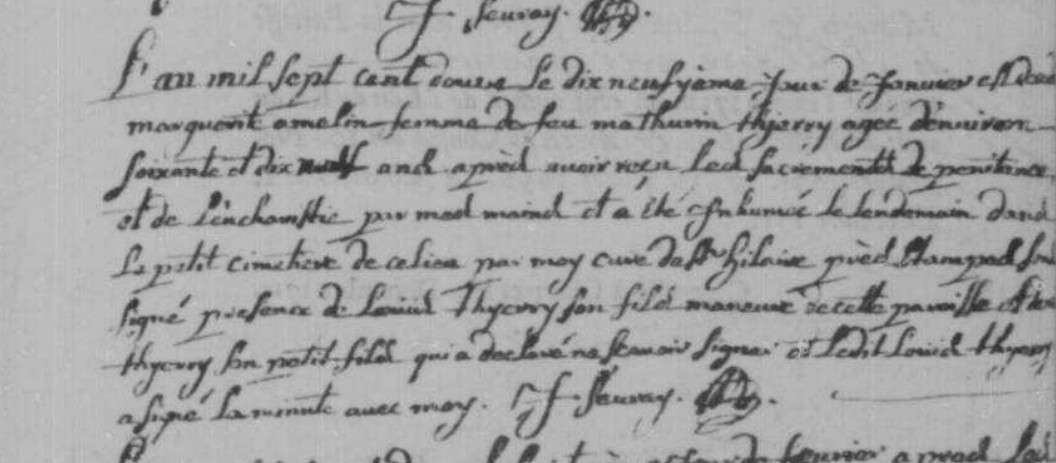 J. Feuvray.
L'an mil sept cent douze le dix neufyeme jour de Janvier est deced
marguerite amelin femme de feu mathurin thyerry agéé d'environ
soixante et dix neuf ans apres avoir reçu les sacrements de penitence
et de l'euchawstie par mes mains et a été inhumée le lendemain dans
le petit cimetiere de ce lieu par moy curé de St hilaire près Etampes sou
signé presence de Louis thyerry son fils maneuvre de cette paroisse et
thyerry son petit fils qui a declaré ne scavoir signer et ledit Louis thyerry
a signé la minute avec moy. J. Feuvray.
fevrier apres les